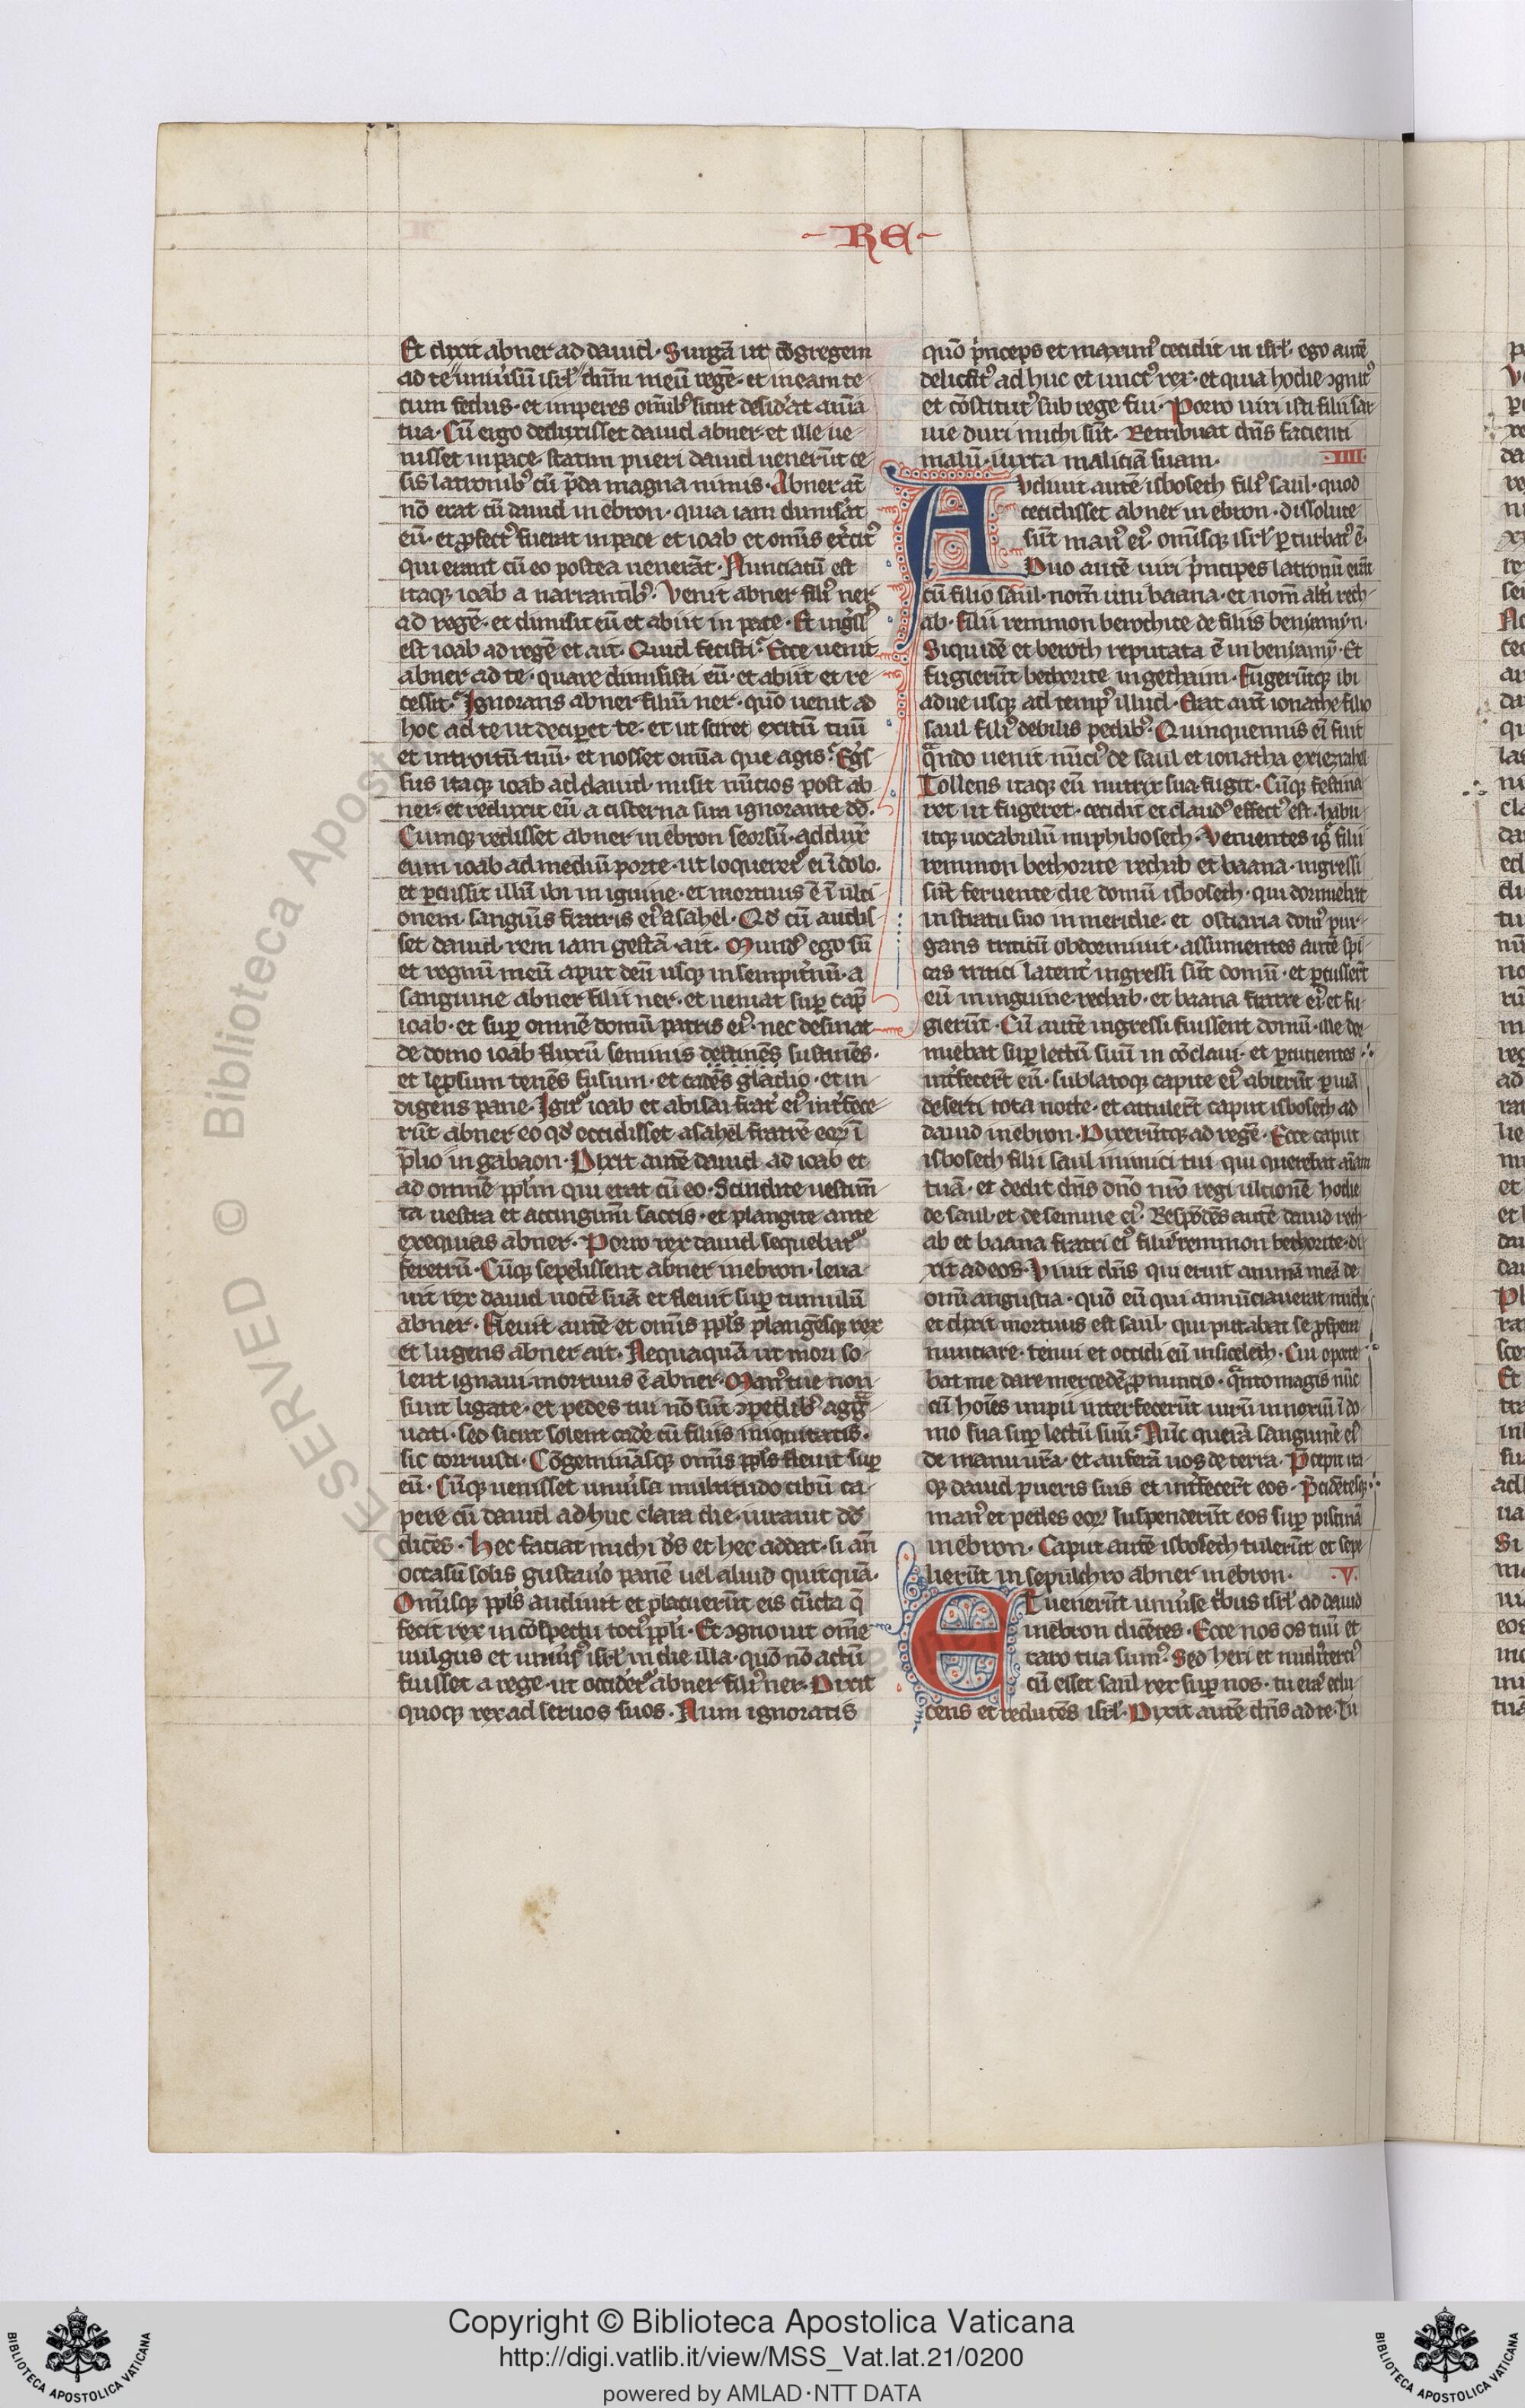 RE
Et dixit abner ad dauid. Surgā ut cōgregem
ad te uniu'sū isrl' dnm̄ meū regē. et ineam te
cum fedus. et imperes omīb; sicut desid'at aīa
tua. Cū ergo deduxisset dauid abner. et ille ue
nisset in pace. statim pueri dauid uenerūt ce
sis latronib; cū p̄da magna nimis. Abner aūt
nō erat cū dauid in ebron. quia iam dimis'at
eū. et ꝓfect᾿ fuerat in pace et ioab et omīs ex'cit᾿
qui erant cū eo postea uenerāt. Nunciatū est
itaq; ioab a narrantib;. Venit abner fili᾿ ner
ad regē. et dimisit eū et abiit in pace. Et ing'ss᾿
est ioab ad regē et ait. Quid fecisti? Ecce uenit
abner ad te. quare dimisisti eū. et abiit et re
cessit? Ignoras abner filiū ner. quō uenit ad
hoc ad te ut deciꝑet te. et ut sciret exitū tuū
et introitū tuū. et nosset omīa que agis? Eg's
sus itaq; ioab ad dauid. misit nūcios post ab
ner. et reduxit eū a cisterna sira ignorante dd̄.
Cumq; redisset abner in ebron seorsū. addux̄
eum ioab ad mediū porte. ut loqueret᾿ ei ī dolo.
et ꝑcussit illū ibi in iguine. et mortuus ē ī ulti
onem sanguīs fratris ei᾿ asahel. Qd' cū audis
set dauid rem iam gestā. ait. Mund᾿ ego sū
et regnū meū aput deū usq; in sempit'nū. a
sanguine abner filii ner. et ueniat suꝑ cap̄
ioab. et suꝑ omnē domū patris ei᾿. nec desinat
de domo ioab fluxū seminis destinēs sustinēs.
et leprsum tenēs fusum. et cadēs gladio. et in
digens pane. Igit᾿ ioab et abisai frat' ei᾿ int'fece
rūt abner eo qd' occidisset asahel fratrē eoꝝ ī
p̄lio in gabaon. Dixit autē dauid ad ioab et
ad omnē ppl'm qui erat cū eo. Scindite uestim̄
ta uestra et accingimī saccis. et plangite ante
exequias abner. Porro rex dauid sequebat᾿
feretrū. Cūq; sepelissent abner in ebron. leua
uit rex dauid uocē suā et fleuit suꝑ tumulū
abner. Fleuit autē et omīs ppl's plangēsq; rex
et lugens abner ait. Nequaquā ut mori so
lent ignaui mortuus ē abner. Man᾿ tue non
sunt ligate. et pedes tui nō sūt ↄpedib; agg̃
uati. sed sicut solent cad'e cū filiis iniquitatis.
sic corruisti. Cōgemināsq; omīs ppl's fleuit suꝑ
eū. Cūq; uenisset uniu'sa multitudo cibū ca
pere cū dauid adhuc clara die. iurauit dd̄
dicēs. Hec faciat michi ds̄ et hec addat. si añ
occasū solis gustau'o panē uel aliud quicquā.
Omīsq; ppl's audiuit et placuerūt eis cūcta q̄
fecit rex in cōspectu toci᾿ ppl'i. Et ↄgnouit ome
uulgus et uniu's᾿ isrl' in die illa. quō nō actū
fuisset a rege. ut occid'et᾿ abner fili᾿ ner. Dixit
quoq; rex ad seruos suos. Num ignoratis
quō p̄nceps et maxim᾿ cecidit in isrl'. ego autē
delicat᾿ ad huc et unct᾿ rex. et quia hodie ↄgnit᾿
et cōstitut᾿ sub rege fui. Porro uiri isti filii sar
uie duri michi sūt. Retribuat dn̄s facienti
malū. iuxta maliciā suam. IIII
Audiuit autē isboseth fili᾿ saul. quod
cecidisset abner in ebron. dissolute
sūt man᾿ ei᾿. omīsq; isrl' ꝑturbat᾿ ē.
Duo autē uiri p̄ncipes latronū erāt
cū filio saul. nom̄ uni baana. et nom̄ alt'i rech
ab. filii remmon berothite de filiis beniamyn.
Siquidē et beroth reputata ē in beniamȳ. Et
fugierūt bethorite in gethaim. Fugerūtq; ibi
adue usq; ad temp᾿ illud. Erat aūt ionathe filio
saul fili᾿ debilis pedib;. Quinquennis ei fuit
q̄ndo uenit nūci᾿ de saul et ionatha ex iezrahel
Tollens itaq; eū nutrix sua. fugit. Cūq; festina
ret ut fugeret. cecidit et claud᾿ effect᾿ est. habu
itq; uocabulū miphiboseth. Venientes ig' filii
remmon bethorite rechab et baana. ingressi
sūt feruente die domū isboseth. qui dormiebat
in stratu suo in meridie. et ostiaria dom᾿ pur
gans triticū obdormiuit. assumentes autē spi
cas tritici latent' ingressi sūt domū. et ꝑcusser̄t
eū in inguine. rechab. et baana fratre ei᾿ et fu
gierūt. Cū autē ingressi fuissent domū. ille dor
miebat suꝑ lectū suū in cōclaui. et ꝑcutientes
int'fecer̄t eū. sublatoq; capite ei᾿. abierūt ꝑ uiā
deserti tota nocte. et attuler̄t caput isboseth ad
dauid in ebron. Dixerūtq; ad regē. Ecce caput
isboseth filii saul inimici tui qui querebat aīam
tuā. et dedit dn̄s dn̄o nr̄o regi ultionē hodie
de saul. et de semine ei᾿. Respōdēs autē dauid rech
ab et baana fratri ei᾿ filii remmon bethorite. di
xit ad eos. Viuit dn̄s qui eruit animā meā de
omī angustia. quō eū qui annūciauerat michi
et dixit mortuus est saul. qui putabat se ꝓspera
nunciare. tenui et occidi eū in sicelech. Cui oporte
bat me dare mercedē ꝓ nuncio. q̄nto magis nūc
cū hoīes impii interfecerūt uirū innoxiū ī do
mo sua suꝑ lectū suū. Nūc querā sanguinē ei᾿
de manu ur̄a. et auferā uos de terra. P̄cepit ita
q; dauid pueris suis et int'fecer̄t eos. P̄cidētesq;
man᾿ et pedes eoꝝ suspenderūt eos suꝑ piscinā
in ebron. Caput autē isboseth tulerūt et sepe
lierūt in sepulchro abner in ebron. V.
Et uenerūt uniu'se tbus isrl' ad dauid
in ebron dicētes. Ecce nos os tuū et
caro tua sum᾿. Sed heri et nudi'terci᾿
cū esset saul rex suꝑ nos. tu era' edu
cens et reducēs isrl'. Dixit autē dn̄s ad te. Tu
RESERVED © Biblioteca Apost
Copyright © Biblioteca Apostolica Vaticana
http://digi.vatlib.it/view/MSS_Vat.lat.21/0200
powered by AMLAD·NTT DATA
BIBLIOTECA APOSTOLICA VATICANA
BIBLIOTECA APOSTOLICA VATICANA